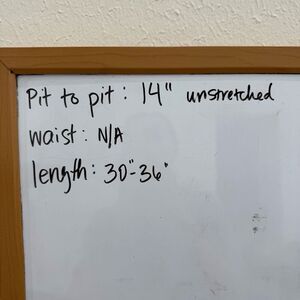 Pit to pit: 14" unstretched
waist: N/A
length: 30"-36"